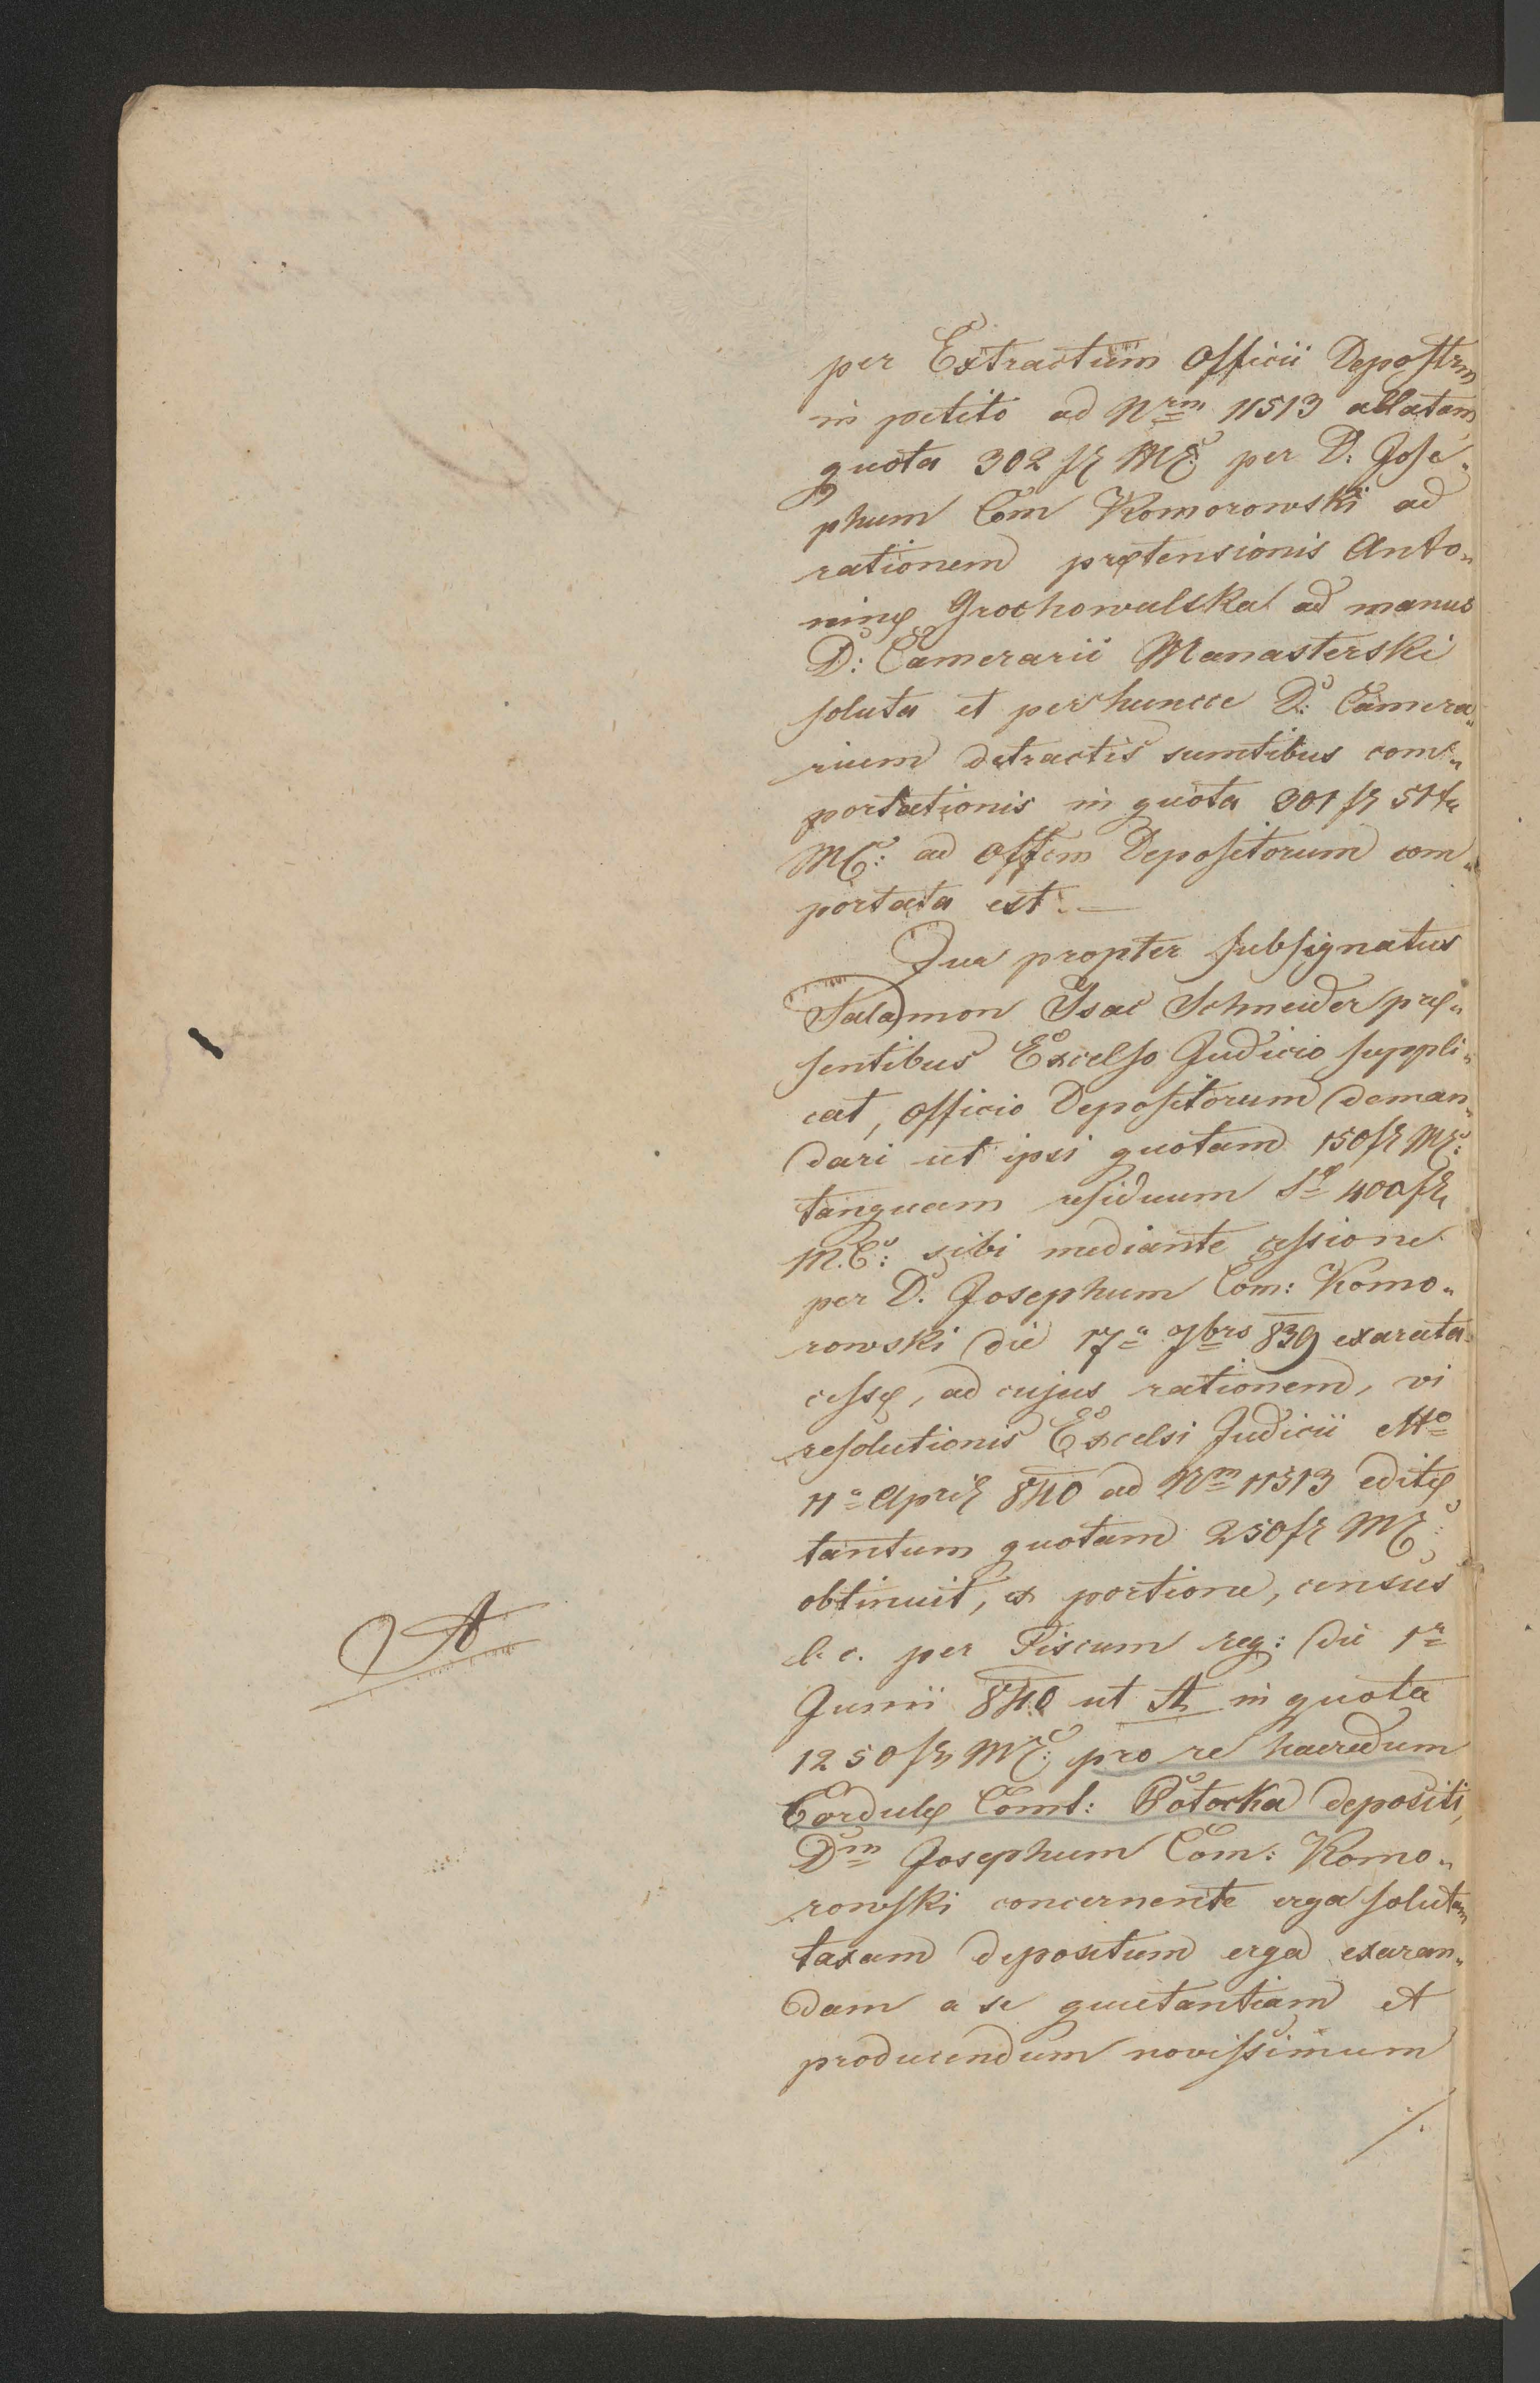 per Extractum Officii Depostrm
in petito ad Nrm 11513 allatam
quota 302 fr MC: per D: Jose„
phum Com Komorowski ad
rationem prętensionis Anto„
ninę Grochowalska ad manus
D: Camerarii Manasterski
soluta et per huncce D: Camera„
rium detractis sumtibus com„
portationis in quota 301 fr 51
MC: ad Offcm Depositorum com„
portata est. —
Qua propter subsignatus
Salamon Isac Schneider prę„
sentibus Excelso Judicio suppli„
cat, Officio Depositorum deman„
dari ut ipsi quotam 150 fr MC:
tanquam residuum Sę 400 fr
M.C: sibi mediante cessione
per D. Josephum Com: Komo„
rowski die 17a 7brs 839 exarata
cessę, ad cujus rationem, vi
resolutionis Excelsi Judicii dtto
11a April 840 ad Nrm 11513 editę
tantum quotam 250 fr MC:
obtinuit, ex portione, census
b. c. per Fiscum reg: die 1a
Junii 840 ut A in quota
1250 fr MC: pro re haeredum
Cordulę Comt: Potocka depositi,
Dm Josephum Com: Komo„
rowski concernente erga solutam
taxam depositum erga exaran„
dam a se quietantiam et
producendum novissimum
./.
A